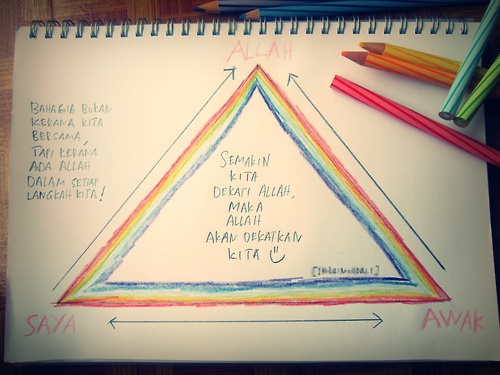 ALLAH
BAHAGIA BUKAN
KERANA KITA
BERSAMA,
TAPI KERANA
ADA ALLAH
DALAM SETIAP
LANGKAH KITA!
SEMAKIN
KITA
DEKATI ALLAH,
MAKA
ALLAH
AKAN DEKATKAN
KITA
SAYA
AWAK